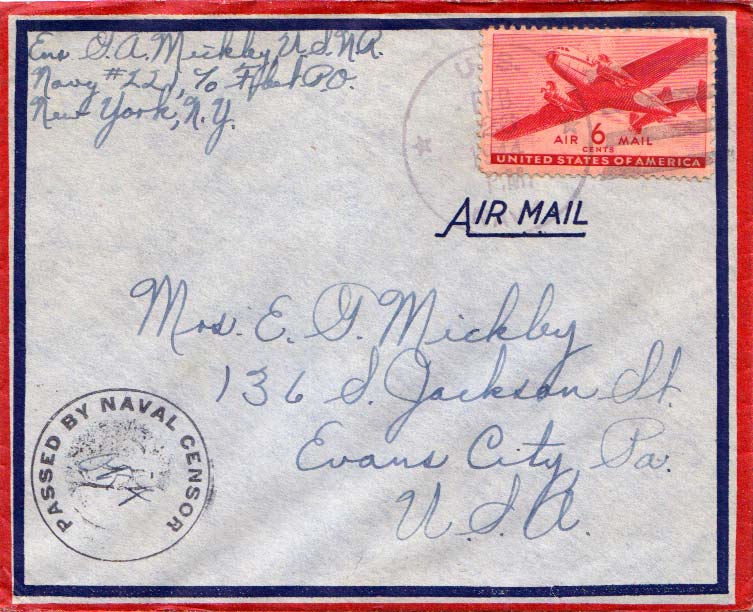 Ens. G. A. Mickley U.S.N.R.
Navy #221, % Fleet P.O.
New York, N.Y.
U.S.
FEB
1944
P.M.
AIR 6 MAIL
CENTS
UNITED STATES OF AMERICA
AIR MAIL
Mrs. E. G. Mickley
136 S. Jackson St.
Evans City, Pa.
U.S.A.
PASSED BY NAVAL CENSOR